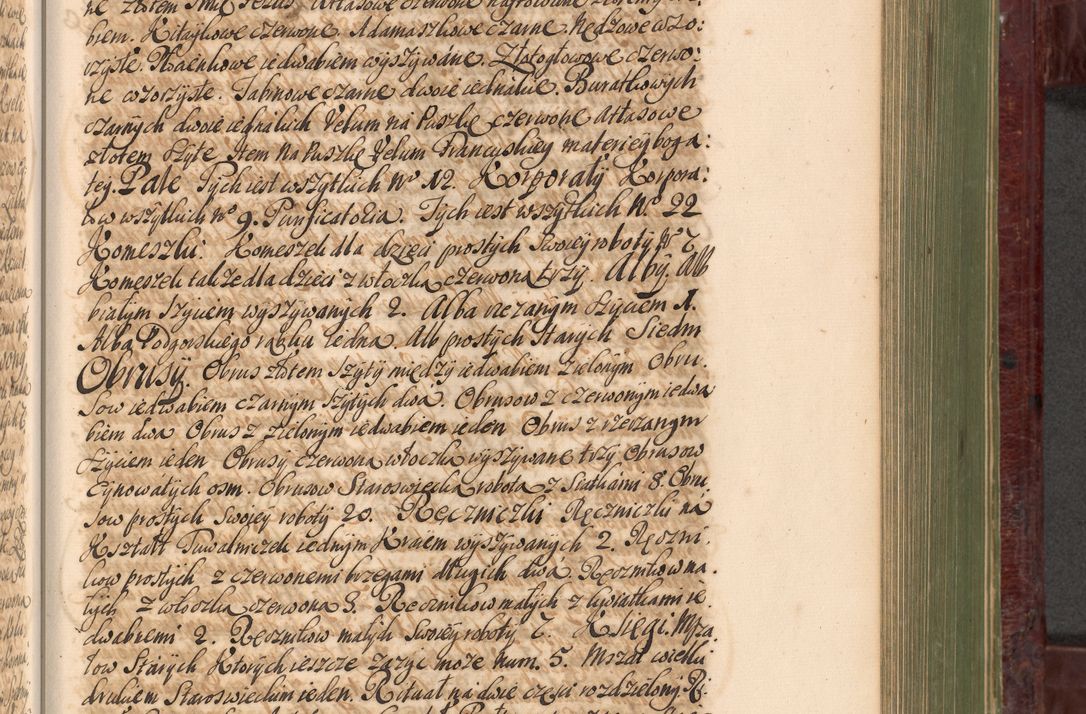 ne złotem
biem. Kitaykowe czerwone. Adamaszkowe czarne. Nędzowe wzo:
rzyste. Płocienkowe iedwabiem wyszywane. Złotogłowowe czerwo:
ne wzorzyste. Tabinowe czarne dwoie iednakie. Buratkowych
czarnych dwoie iednakich Velum na Puszkę czerwone Atłasowe
złotem szyte Item na Puszkę Velum Francuskiey materiey boga:
tey. Pale Tych iest wszytkich Nº 12. Korporały Korpora:
łow wszytkich Nº 9. Purificatoria. Tych iest wszytkich Nº 22
Komeszki. Komeszek dla dzieci prostych Swoiey roboty Nº 7
Komeszek także dla dzieci z włoczką czerwoną trzy. Alby. Alb
białym szyciem wyszywanych 2. Alba rzezanym szyciem 1.
Alba Podgorskiego rąbku iedna. Alb prostych Starych Siedm
Obrusy. Obrus złotem szyty między iedwabiem zielonym Obru:
sow iedwabiem czarnym szytych dwa. Obrusow z czerwonym iedwa
biem dwa Obrus z zielonym iedwabiem ieden Obrus z rzezanym
szyciem ieden Obrusy czerwoną włoczką wyszywane trzy Obrusow
Cynowatych osm. Obrusow Staroswiecką robotą z Siatkami 8. Obru
sow prostych Swoiey roboty 20. Ręczniczki Ręczniczki na
Kształt Tuwalniczek iednym Kraiem wyszywanych 2. Ręczni:
kow prostych z czerwonemi brzegami długich dwa. Ręcznikow ma:
łych z włoczką czerwoną 3. Ręcznikow małych z kwiatkami ie:
dwabnemi 2. Ręcznikow małych Swoiey roboty 7. Księgi. Msza:
łow Starych Ktorych ieszcze zazyc moze Num. 5. Mszał wielki
drukiem Staroswieckim ieden. Rituał na dwie części rozdzielony R: